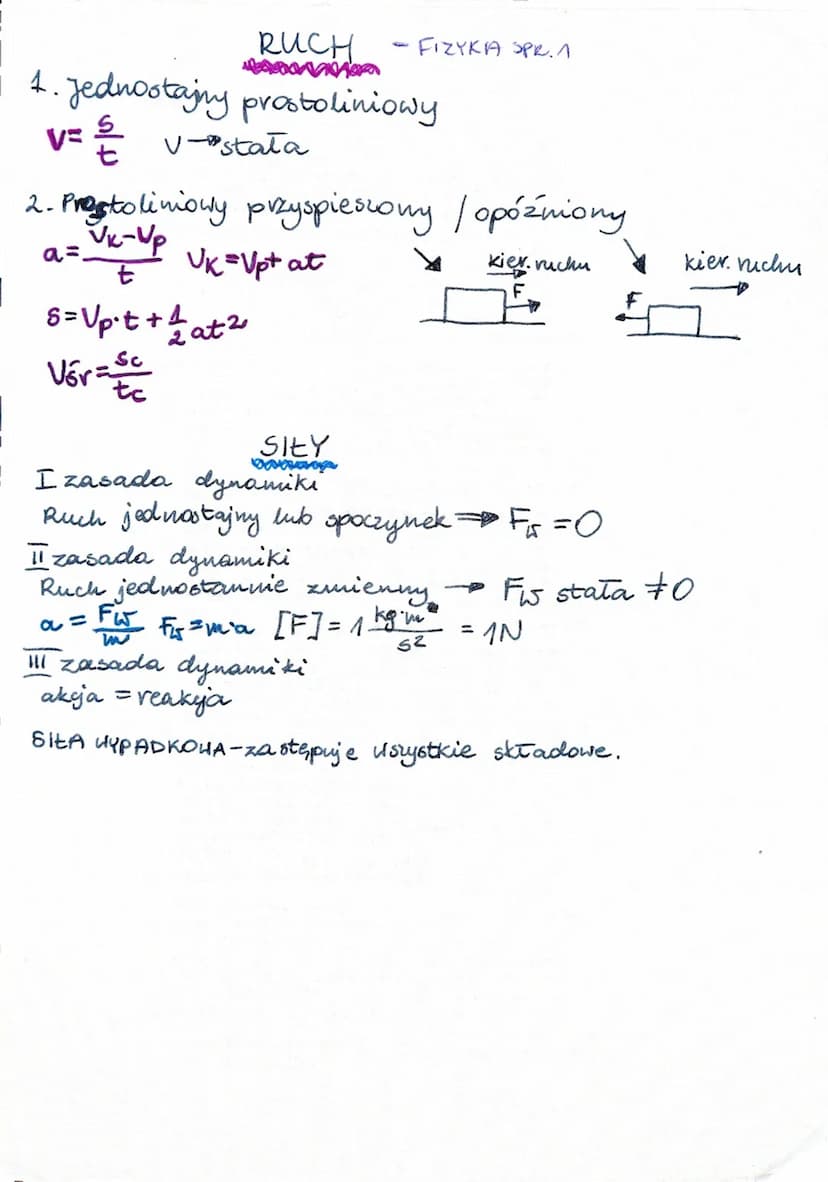 RUCH - FIZYKA SPR. 1
1. Jednostajny prostoliniowy
V = s/t V → stała
2. Prostoliniowy przyspieszony / opóźniony
a = Vk-Vp/t Vk = Vp + at
kier. ruchu kier. ruchu
F F
s = Vp·t + 1/2 at²
Vśr = sc/tc
SIŁY
I zasada dynamiki
Ruch jednostajny lub spoczynek ⇒ Fw = 0
II zasada dynamiki
Ruch jednostannie zmienny → Fw stała ≠ 0
a = Fw/m Fw = m·a [F] = 1 kg·m/s² = 1N
III zasada dynamiki
akcja = reakcja
SIŁA WYPADKOWA - zastępuje wszystkie składowe.